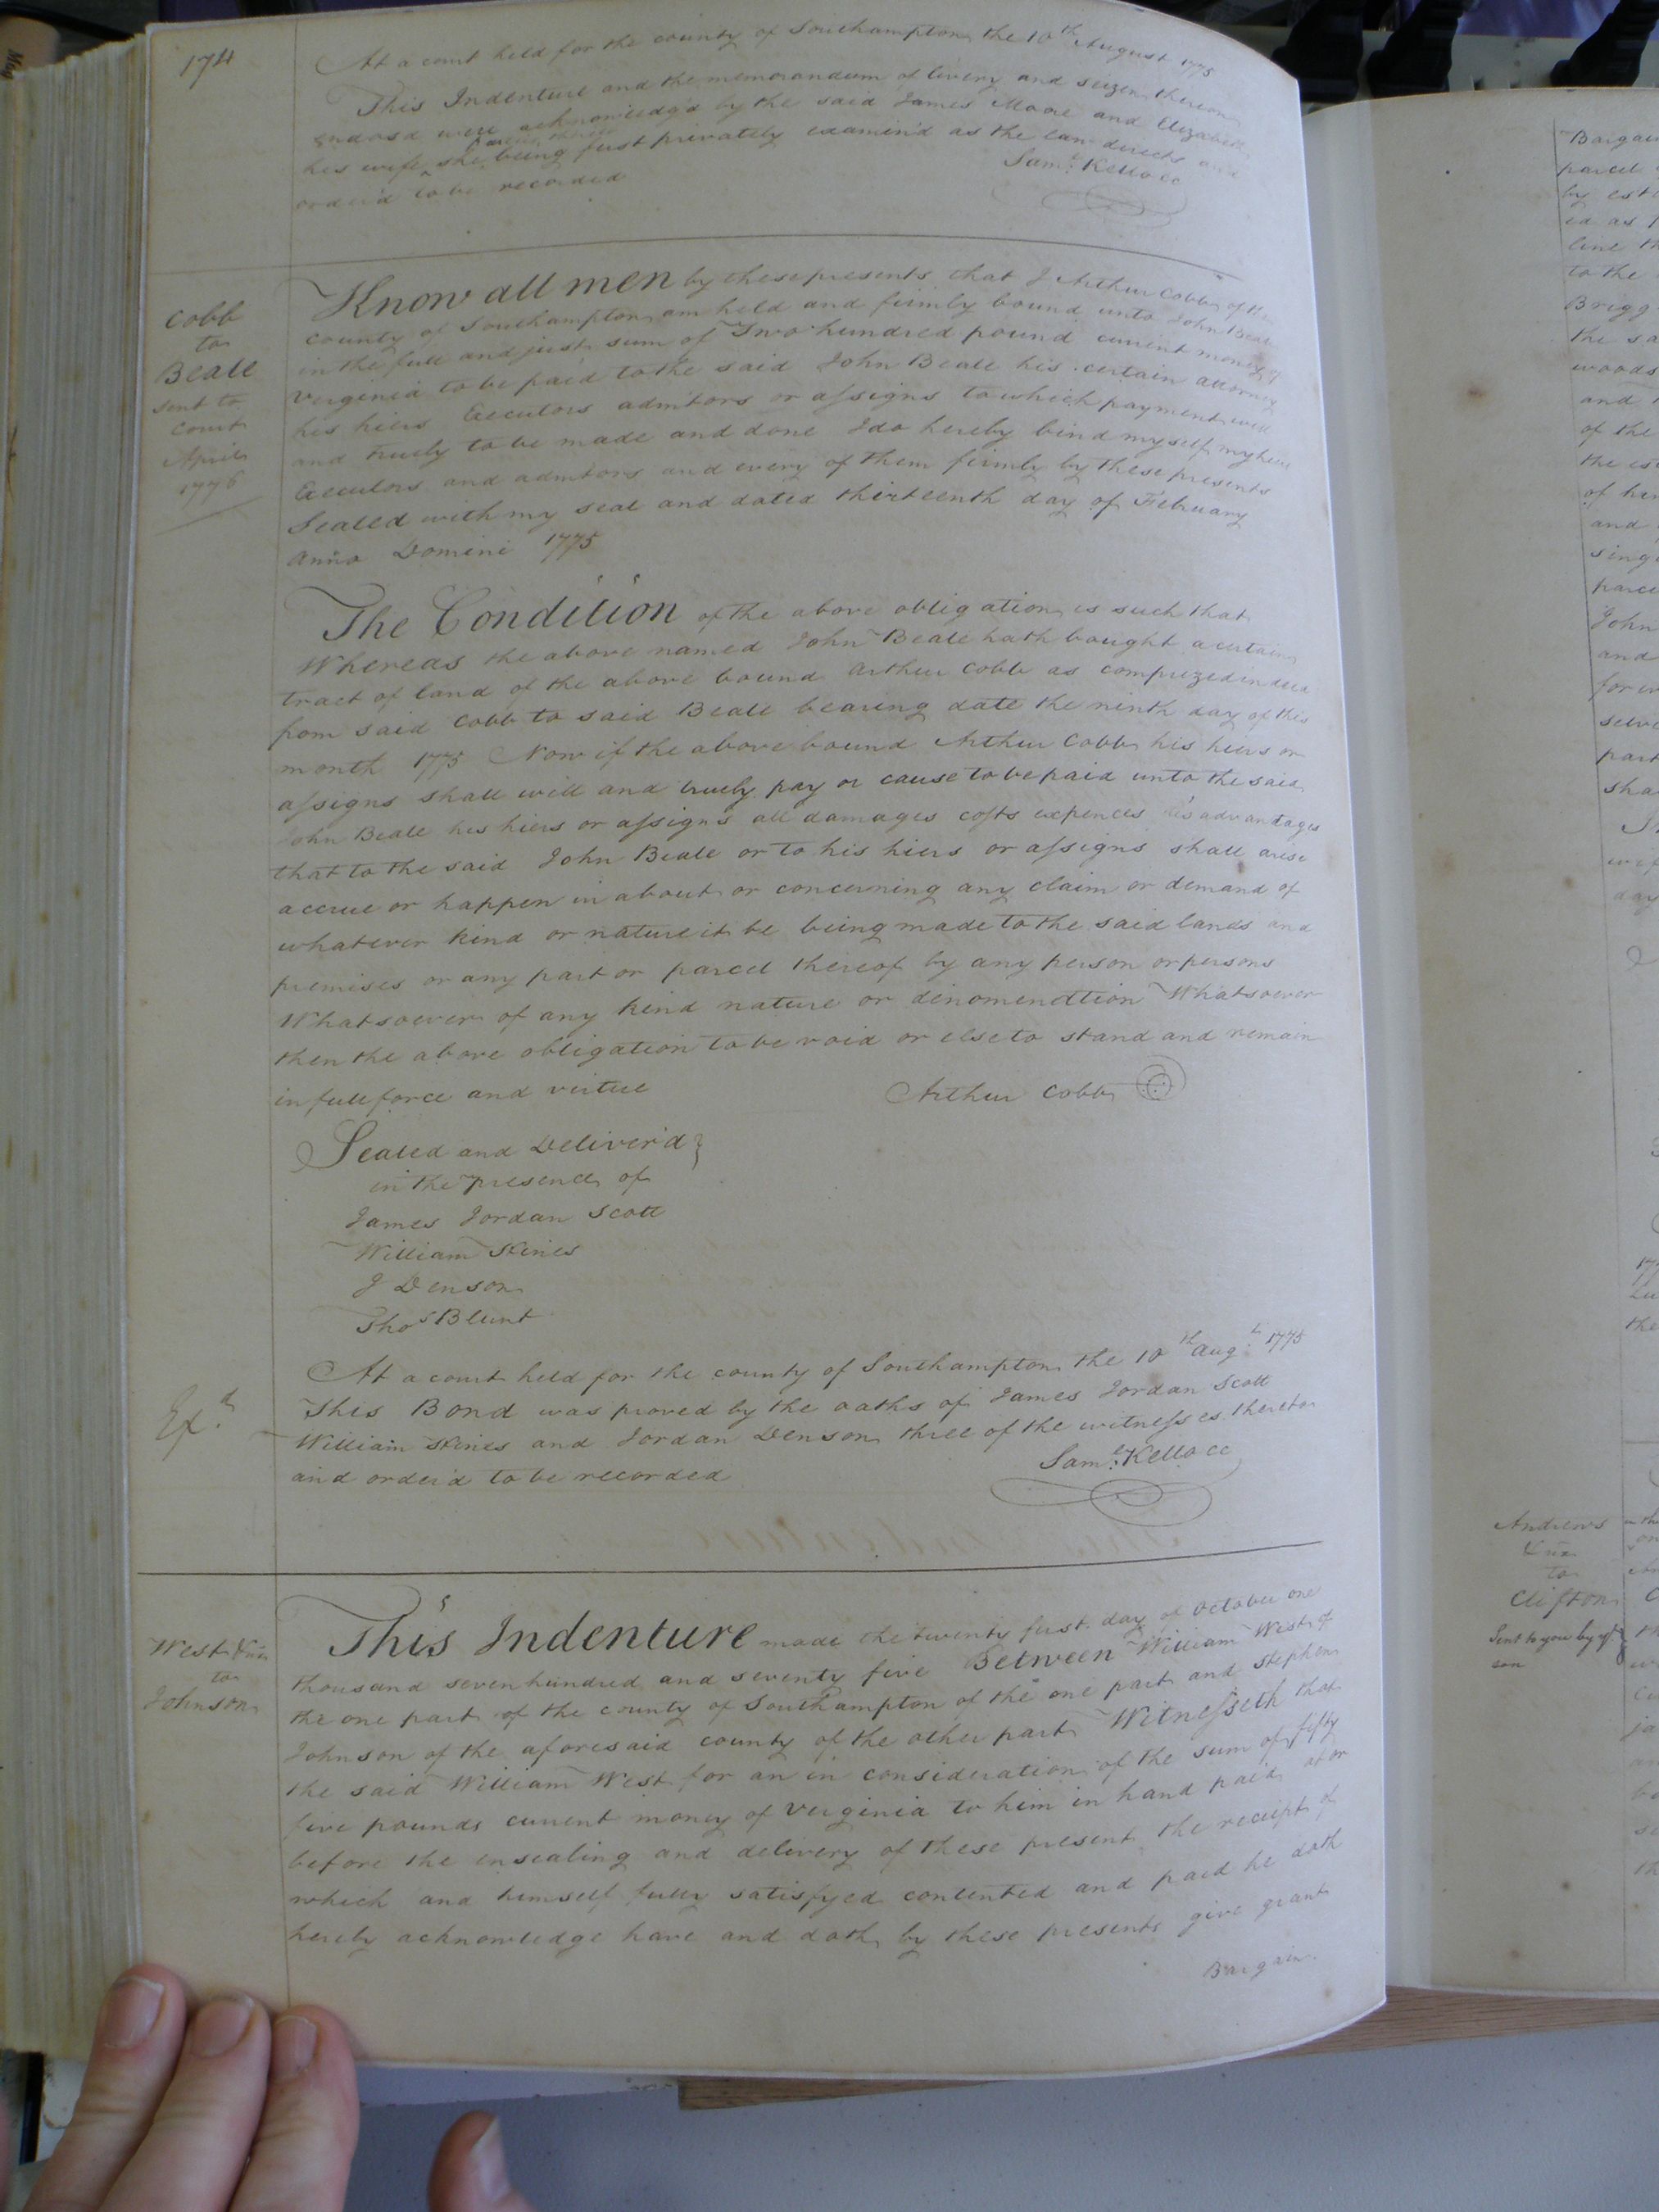 174
At a court held for the county of Southampton the 10th August 1775
This Indenture and the memorandum of livery and seizen thereon
endorsd were acknowledg'd by the said James Moore and Elizabeth
his wife she being first privately examin'd as the law directs and
order'd to be recorded
Saml. Kello CC
Cobb
to
Beale
sent to
Court
April
1776
Know all men by these presents that I Arthur Cobb of the
county of Southampton am held and firmly bound unto John Beale
in the full and just sum of Two hundred pound current money of
Verginia to be paid to the said John Beale his certain attorney
his hiers Executors admitors or assigns to which payment well
and truely to be made and done I do hereby bind myself my hiers
Executors and admitors and every of them firmly by these presents
Sealed with my seal and dated thirteenth day of February
Anno Domini 1775
The Condition of the above obligation is such that
Whereas the above named John Beale hath bought a certain
tract of land of the above bound Arthur Cobb as comprized in deed
from said Cobb to said Beale bearing date the ninth day of this
month 1775 Now if the above bound Arthur Cobb his hiers or
assigns shall will and truely pay or cause to be paid unto the said
John Beale his hiers or assigns all damages costs expences disadvantages
that to the said John Beale or to his hiers or assigns shall arise
accrue or happen in about or concerning any claim or demand of
whatever kind or nature it be being made to the said lands and
premises or any part or parcel thereof by any person or persons
Whatsoever of any kind nature or dinomendtion Whatsoever
then the above obligation to be void or else to stand and remain
in full force and virtue
Arthur Cobb
Sealed and Deliver'd
in the presence of
James Jordan Scott
William Hines
J Denson
Thos Blunt
Exd
At a court held for the county of Southampton the 10th Augt 1775
This Bond was proved by the oaths of James Jordan Scott
William Hines and Jordan Denson three of the witnesses thereto
and order'd to be recorded
Saml. Kello CC
West &ux
to
Johnson
This Indenture made the twenty first day of October one
thousand seven hundred and seventy five Between William West of
the one part of the county of Southampton of the one part and Stephen
Johnson of the aforesaid county of the other part Witnesseth that
the said William West for an in consideration of the sum of fifty
five pounds current money of Verginia to him in hand paid at or
before the ensealing and delivery of these present the receipt of
which and himself fully satisfyed contented and paid he doth
hereby acknowledge have and doth by these presents give grant
Bargain
Bargain
parcel
by esti
ed as
line th
to the
Brigg
the sa
woods
and
of the
the es
of her
and
sing
parce
John
and
for ev
selve
part
sha
day
the
Andrews
&ux
to
Clifton
Sent to you by yr
son